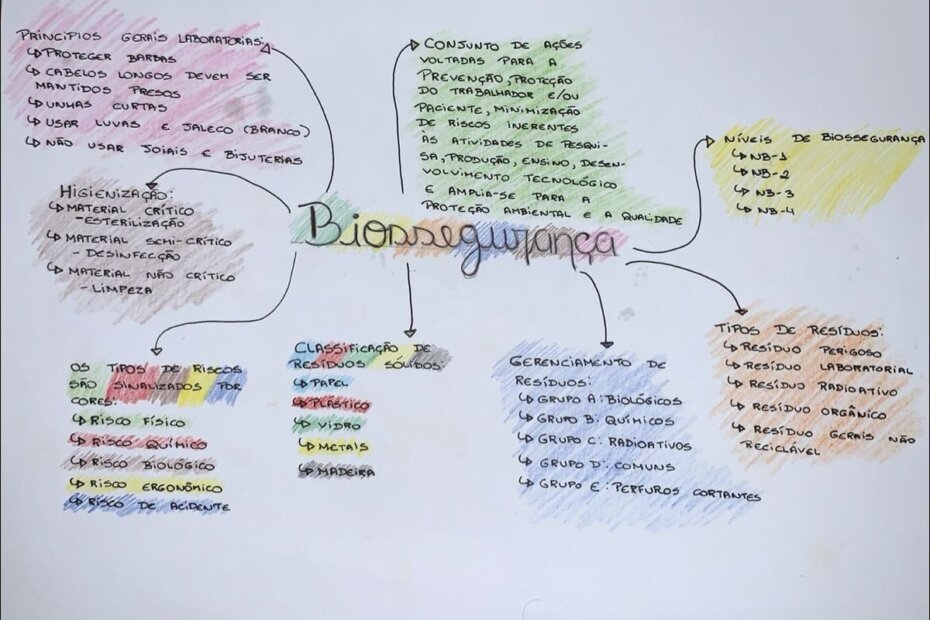 PRINCÍPIOS GERAIS LABORATORIAS:
PROTEGER BARBAS
CABELOS LONGOS DEVEM SER
MANTIDOS PRESOS
UNHAS CURTAS
USAR LUVAS E JALECO (BRANCO)
NÃO USAR JOIAIS E BIJUTERIAS
CONJUNTO DE AÇÕES
VOLTADAS PARA A
PREVENÇÃO, PROTEÇÃO
DO TRABALHADOR E/OU
PACIENTE, MINIMIZAÇÃO
DE RISCOS INERENTES
ÀS ATIVIDADES DE PESQUI-
SA, PRODUÇÃO, ENSINO, DESEN-
VOLVIMENTO TECNOLÓGICO
E AMPLIA-SE PARA A
PROTEÇÃO AMBIENTAL E A QUALIDADE
NÍVEIS DE BIOSSEGURANÇA
NB-1
NB-2
NB-3
NB-4
HIGIENIZAÇÃO:
MATERIAL CRÍTICO
-ESTERILIZAÇÃO
MATERIAL SEMI-CRÍTICO
- DESINFECÇÃO
MATERIAL NÃO CRÍTICO
- LIMPEZA
Biossegurança
OS TIPOS DE RISCOS
SÃO SINALIZADOS POR
CORES:
RISCO FÍSICO
RISCO QUÍMICO
RISCO BIOLÓGICO
RISCO ERGONÔMICO
RISCO DE ACIDENTE
CLASSIFICAÇÃO DE
RESÍDUOS SÓLIDOS
PAPEL
PLÁSTICO
VIDRO
METAIS
MADEIRA
GERENCIAMENTO DE
RESÍDUOS:
GRUPO A: BIOLÓGICOS
GRUPO B: QUÍMICOS
GRUPO C: RADIOATIVOS
GRUPO D: COMUNS
GRUPO E: PERFUROS CORTANTES
TIPOS DE RESÍDUOS:
RESÍDUO PERIGOSO
RESÍDUO LABORATORIAL
RESÍDUO RADIOATIVO
RESÍDUO ORGÂNICO
RESÍDUO GERAIS NÃO
RECICLÁVEL